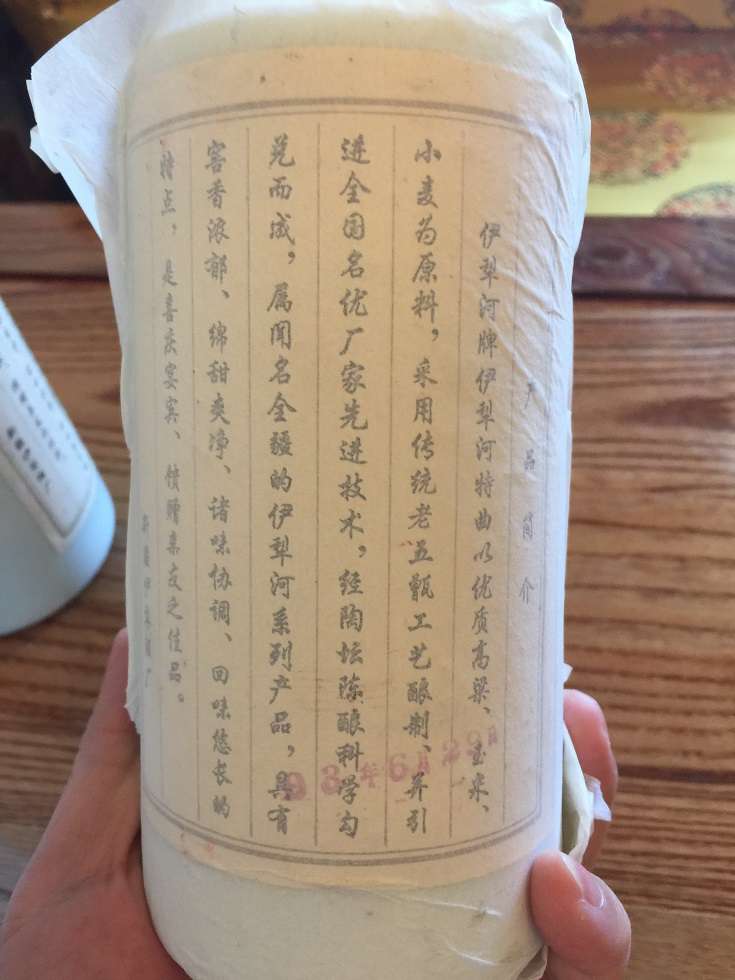 产品简介
伊犁河牌伊犁河特曲以优质高粱、玉米、
小麦为原料，采用传统老五甑工艺酿制、并引
进全国名优厂家先进技术，经陶坛陈酿科学勾
兑而成，属闻名全疆的伊犁河系列产品，具有
窖香浓郁、绵甜爽净、诸味协调、回味悠长的
特点，是喜庆宴宾、馈赠亲友之佳品。
93年6月29日